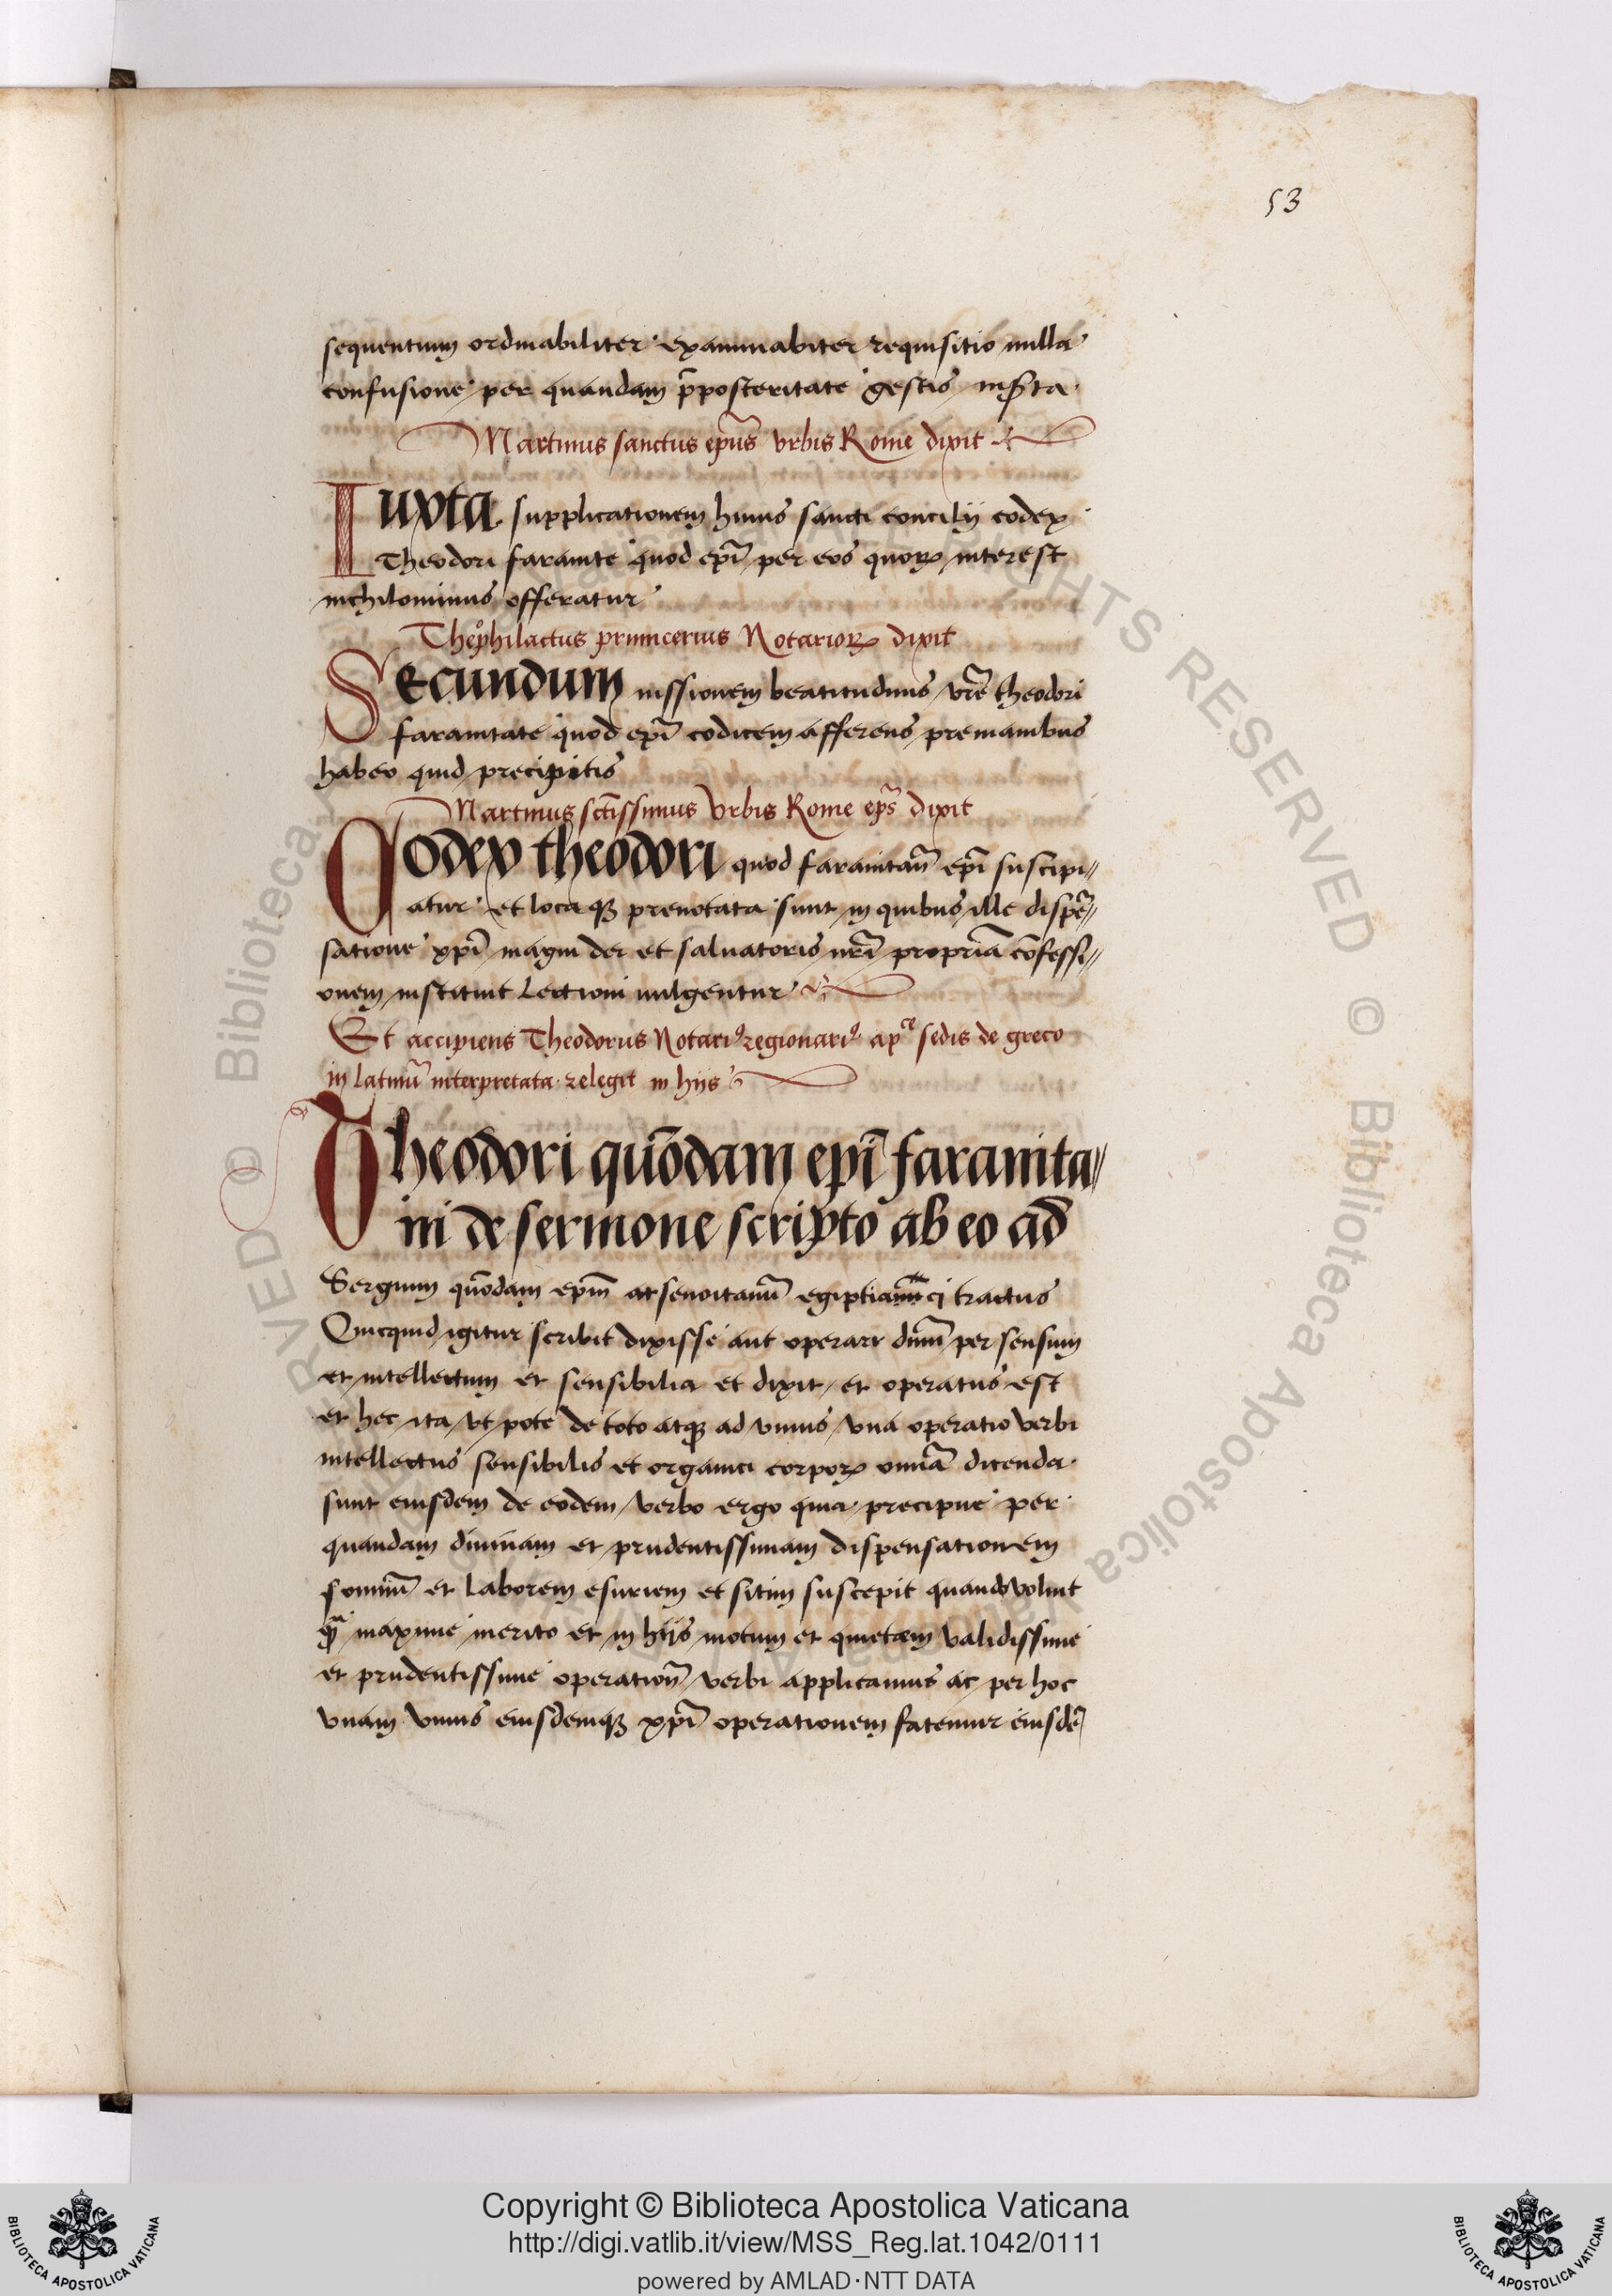 53
sequentium ordinabiliter examinabiter requisitio nulla
confusione per quandam p̄posteritate gestis insr̄ta
Martinus sanctus ep̄us vrbis Rome dixit
Iuxta supplicationem huius sancti concilij codex
Theodori faranite quod ep̄i per eos quoꝝ interest
nichilominus offeratur
Theophilactus primicerius Notarioꝝ dixit
Secundum iussionem beatitudinis vr̄e theodori
faranitate quod ep̄i codicem afferens premanibus
habeo quid precipitis
Martinus sc̄tissimus Vrbis Rome ep̄s dixit
Codex theodori quod faranitan̄ ep̄i suscipi〃
atur et loca qꝫ prenotata sunt in quibus ille dispē〃
satione xp̄i magni dei et saluatoris nr̄i propriā cōfessi〃
onem instituit Lectioni iulgentur
Et accipiens Theodorus Notariꝰ regionariꝰ apce sedis de greco
in latinū interpretata relegit in hijs
Theodori quōdam ep̄i faranita〃
ni de sermone scripto ab eo ad
Sergium quōdam ep̄m arsenoitanū egiptia ci tractus
Quicquid igitur scribit dixisse aut operari dn̄m per sensum
et intellectum et sensibilia et dixit et operatus est
et hec ita vt pote de toto atqꝫ ad vnius vna operatio verbi
intellectus sensibilis et organici corporꝝ omīa dicenda
sunt eiusdem de eodem verbo ergo quia precipue per
quandam diuinam et prudentissimam dispensationem
somnū et laborem esuriem et sitim suscepit quando voluit
maxime merito et in hijs motum et quietem validissime
et prudentissime operation̄ verbi applicamus ac per hoc
vnam vnius eiusdemqꝫ xp̄i operationem fatemur eiusdē
Copyright © Biblioteca Apostolica Vaticana
http://digi.vatlib.it/view/MSS_Reg.lat.1042/0111
powered by AMLAD·NTT DATA
BIBLIOTECA APOSTOLICA VATICANA
BIBLIOTECA APOSTOLICA VATICANA